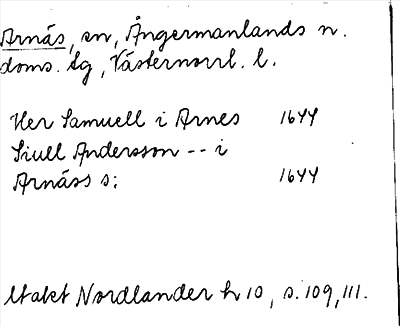 Arnäs, sn, Ångermanlands n.
doms. tg, Västernorrl. l.
Her Samuell i Arnes 1644
Siull Andersson -- i
Arnäss s: 1644
Utakt Nordlander h 10, s. 109, 111.